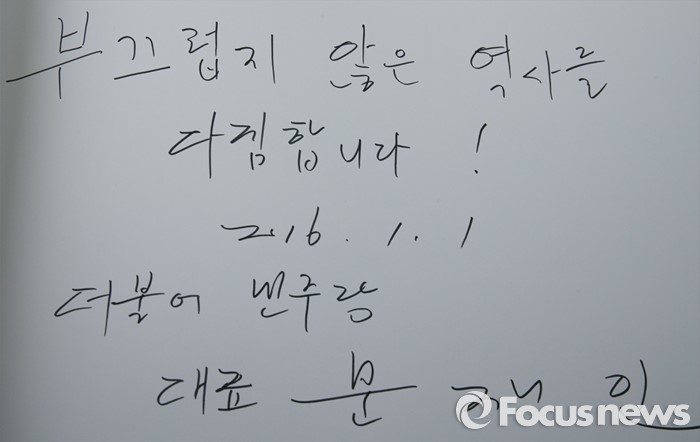 부끄럽지 않은 역사를
다짐합니다!
2016.1.1
더불어 민주당
대표 문재인
Focusnews